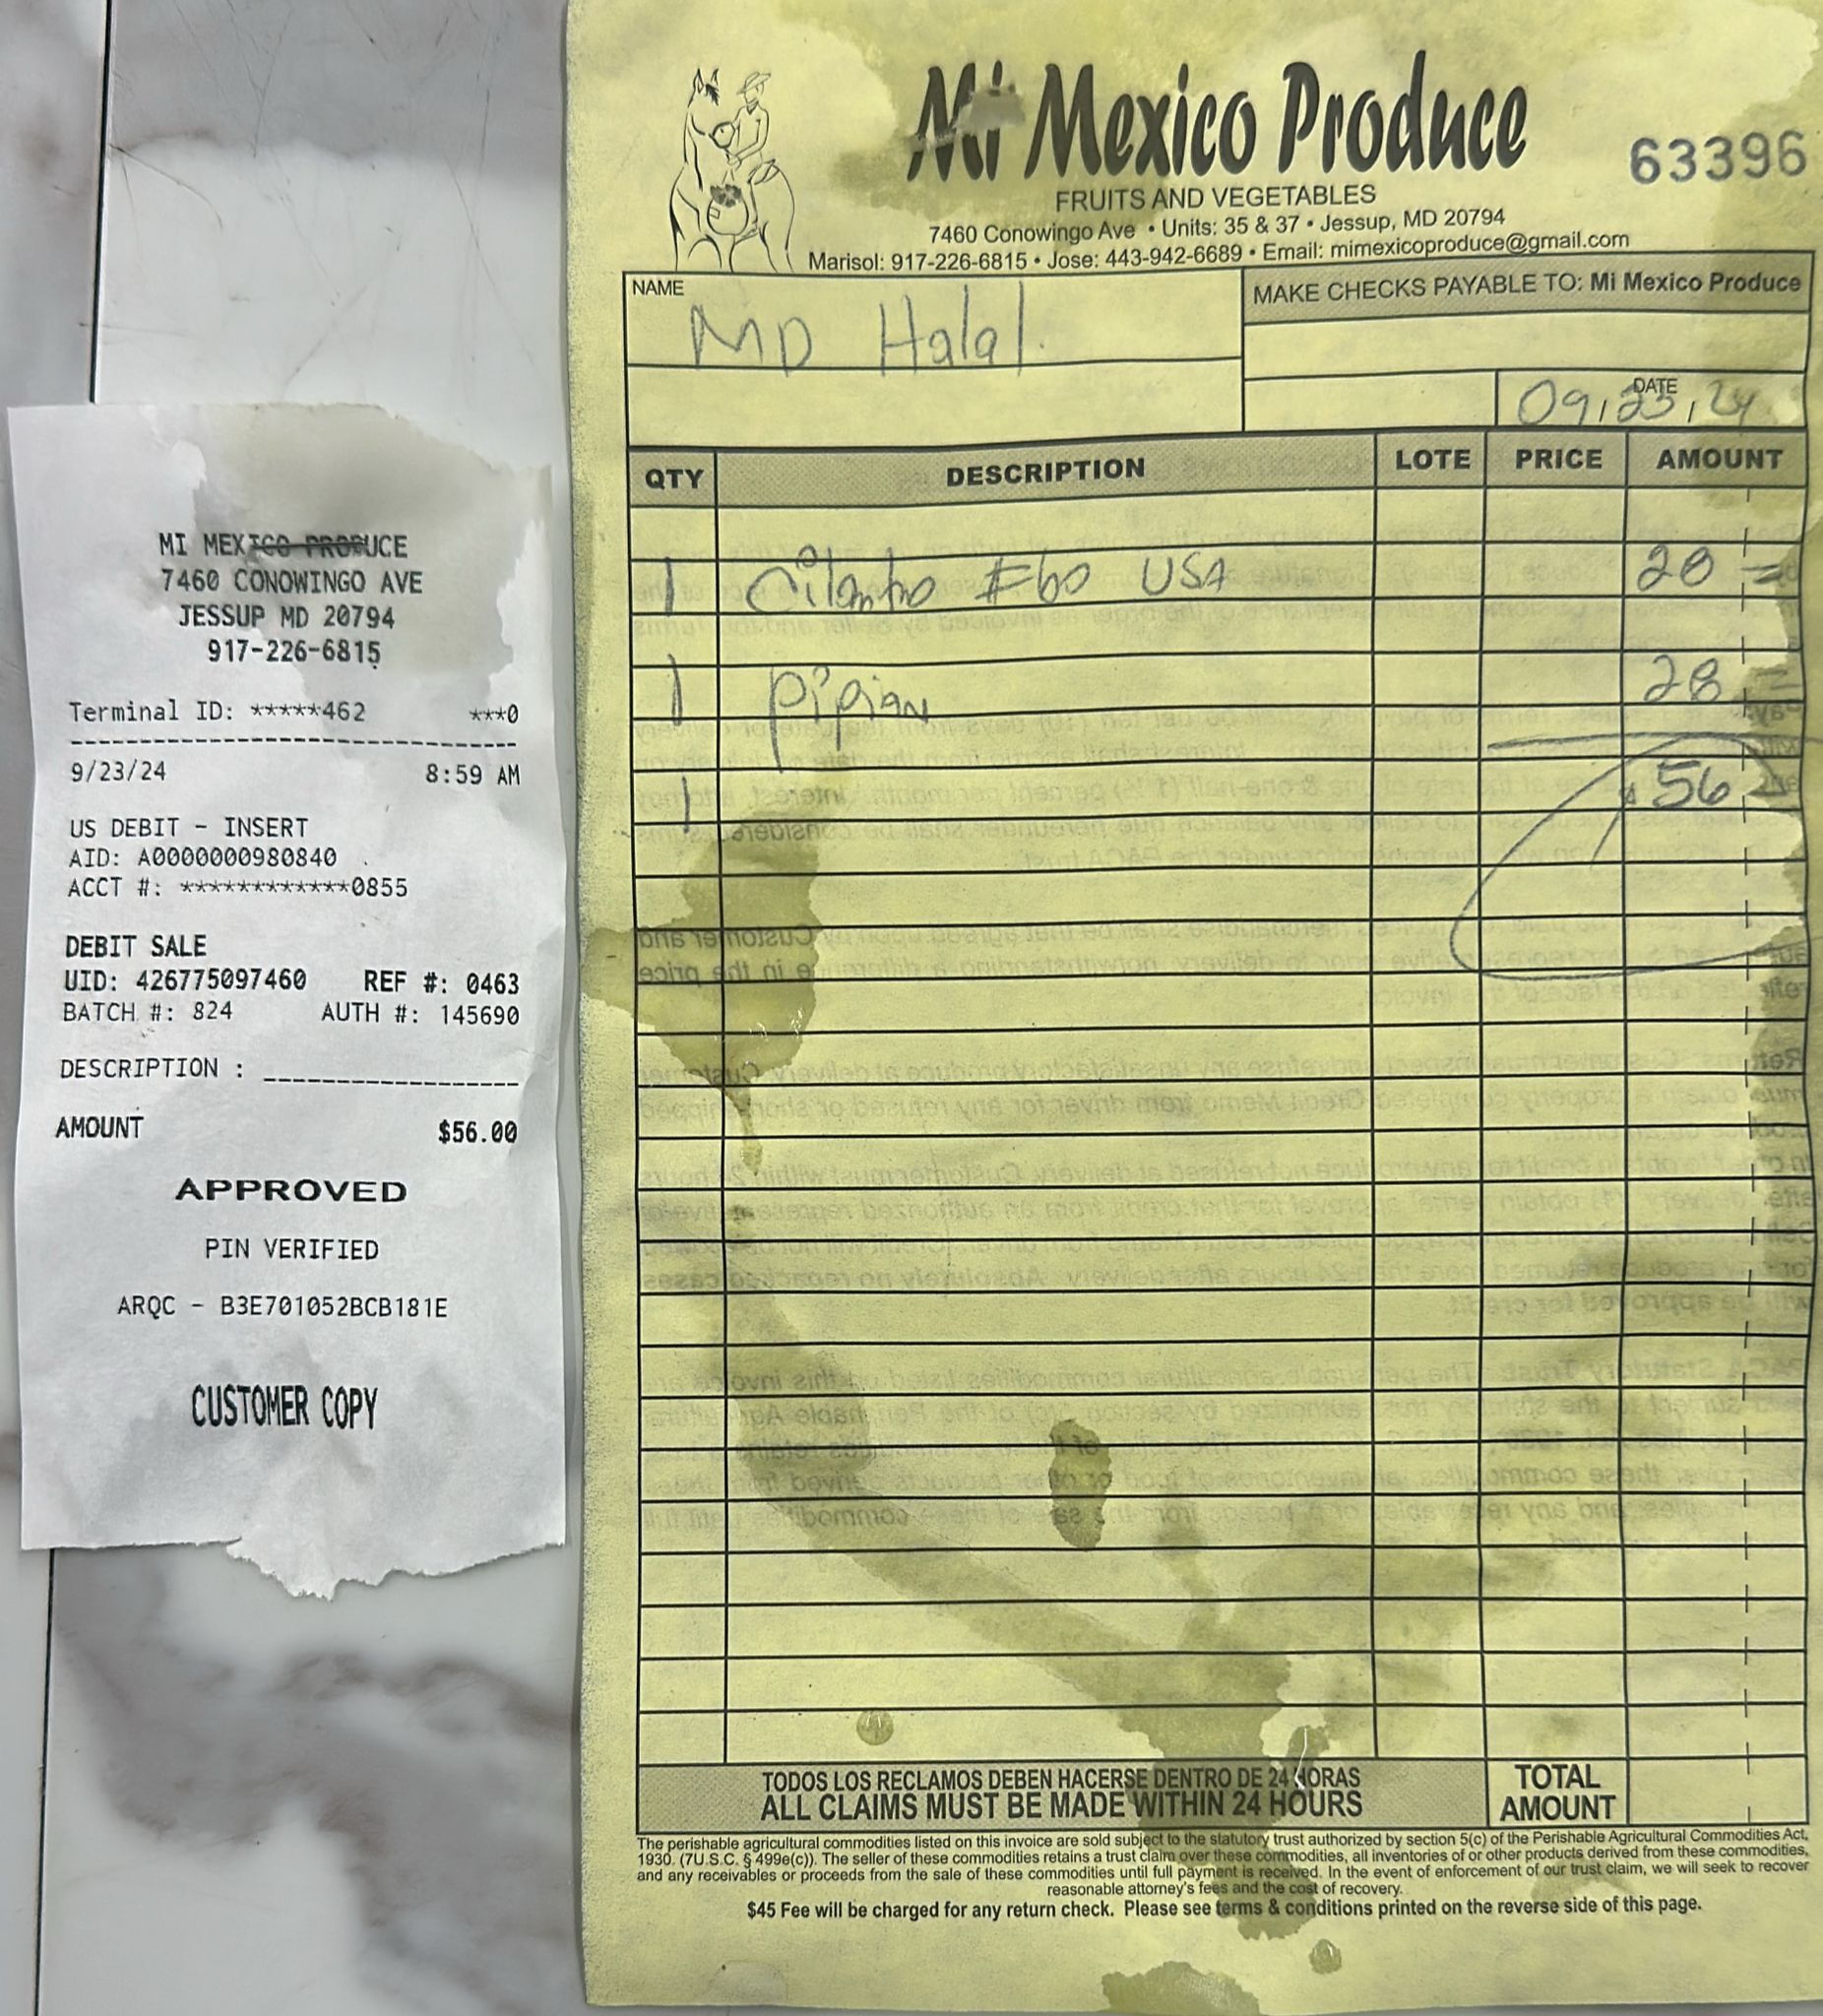 MI MEXICO PRODUCE
7460 CONOWINGO AVE
JESSUP MD 20794
917-226-6815
Terminal ID: *****462 ***0
9/23/24 8:59 AM
US DEBIT - INSERT
AID: A0000000980840
ACCT #: ************0855
DEBIT SALE
UID: 426775097460 REF #: 0463
BATCH #: 824 AUTH #: 145690
DESCRIPTION :
AMOUNT $56.00
APPROVED
PIN VERIFIED
ARQC - B3E701052BCB181E
CUSTOMER COPY
Mi Mexico Produce
63396
FRUITS AND VEGETABLES
7460 Conowingo Ave • Units: 35 & 37 • Jessup, MD 20794
Marisol: 917-226-6815 • Jose: 443-942-6689 • Email: mimexicoproduce@gmail.com
NAME
MD Halal
MAKE CHECKS PAYABLE TO: Mi Mexico Produce
DATE
09,23,24
QTY DESCRIPTION LOTE PRICE AMOUNT
1 Cilantro #60 USA 28
1 Pipian 28
1 $56
TODOS LOS RECLAMOS DEBEN HACERSE DENTRO DE 24 HORAS
ALL CLAIMS MUST BE MADE WITHIN 24 HOURS
TOTAL
AMOUNT
The perishable agricultural commodities listed on this invoice are sold subject to the statutory trust authorized by section 5(c) of the Perishable Agricultural Commodities Act,
1930. (7U.S.C. § 499e(c)). The seller of these commodities retains a trust claim over these commodities, all inventories of or other products derived from these commodities,
and any receivables or proceeds from the sale of these commodities until full payment is received. In the event of enforcement of our trust claim, we will seek to recover
reasonable attorney's fees and the cost of recovery.
$45 Fee will be charged for any return check. Please see terms & conditions printed on the reverse side of this page.